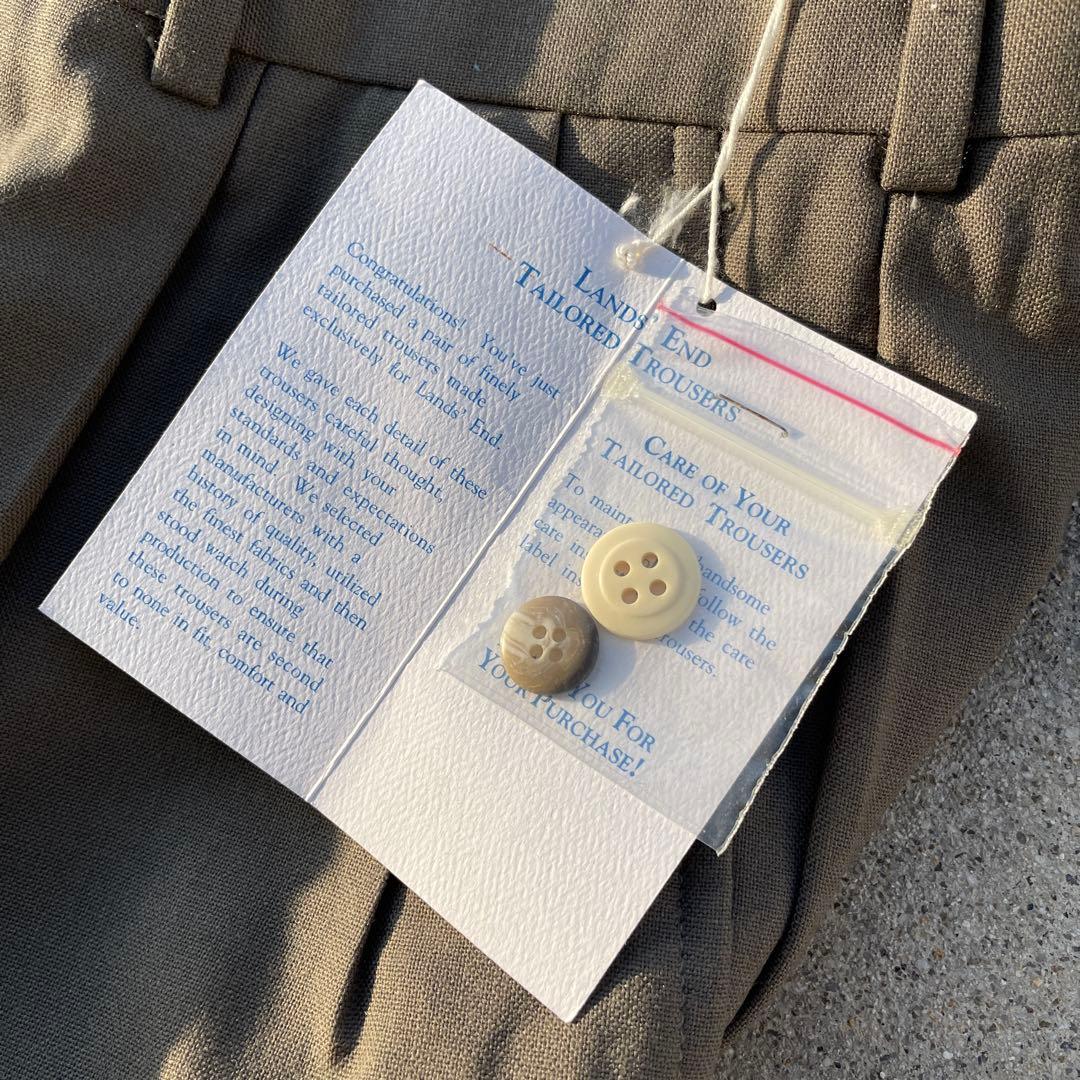 LANDS' END
TAILORED TROUSERS
Congratulations! You've just
purchased a pair of finely
tailored trousers made
exclusively for Lands' End.
We gave each detail of these
trousers careful thought,
designing with your
standards and expectations
in mind. We selected
manufacturers with a
history of quality, utilized
the finest fabrics and then
stood watch during
production to ensure that
these trousers are second
to none in fit, comfort and
value.
CARE OF YOUR
TAILORED TROUSERS
To
handsome
care follow the
label the care
trousers.
YOU FOR
YOUR PURCHASE!